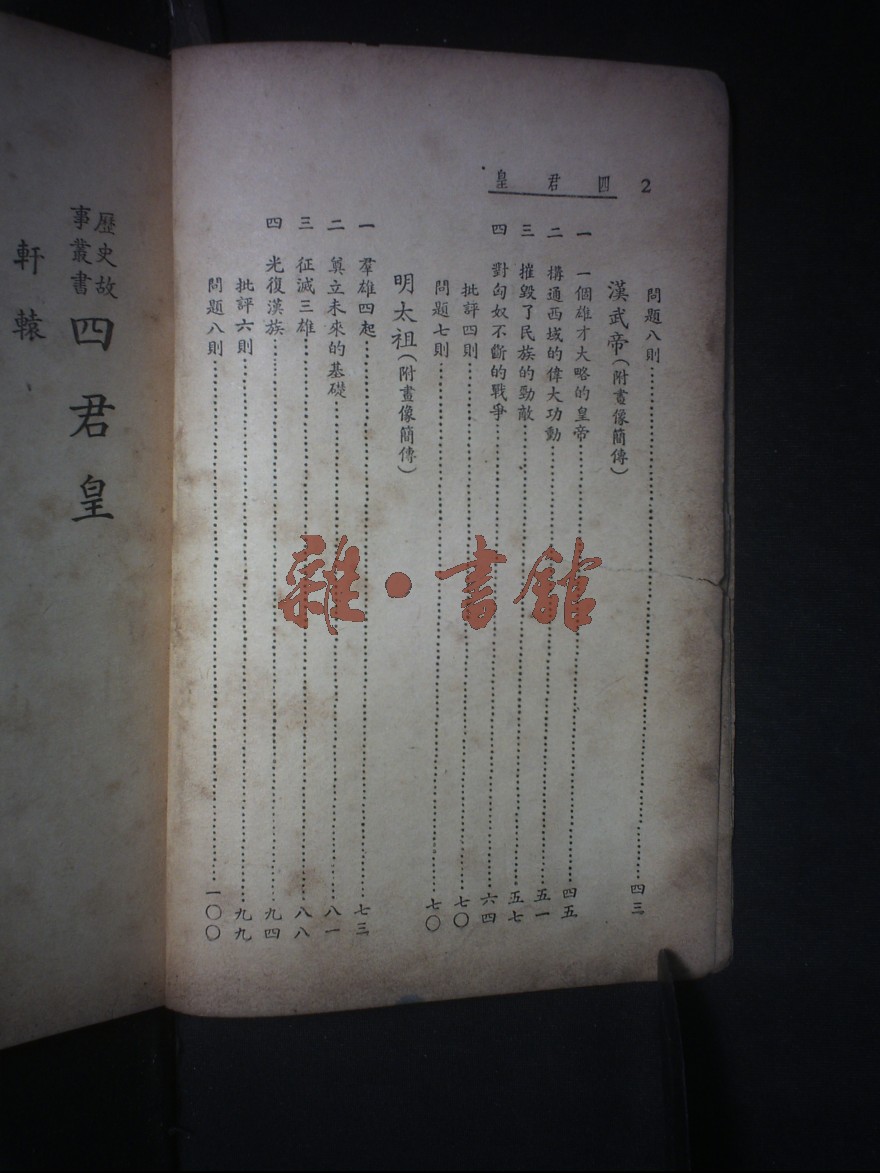 2 四君皇
問題八則……四三
漢武帝(附畫像簡傳)
一 一個雄才大略的皇帝……四五
二 構通西域的偉大功勳……五一
三 摧毀了民族的勁敵……五七
四 對匈奴不斷的戰爭……六四
批評四則……七〇
問題七則……七〇
明太祖(附畫像簡傳)
一 羣雄四起……七三
二 奠立未來的基礎……八一
三 征滅三雄……八八
四 光復漢族……九四
批評六則……九九
問題八則……一〇〇
歷史故
事叢書
四君皇
軒轅
雜·書館